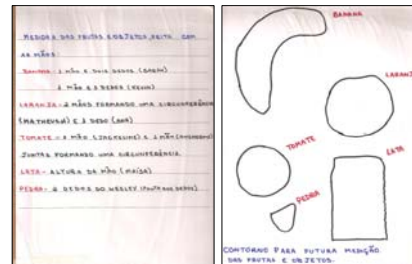 MEDIDA DAS FRUTAS E OBJETOS, FEITO COM
AS MÃOS:
BANANA - 1 MÃO E DOIS DEDOS (SARAH)
1 MÃO E 3 DEDOS (KEVIN)
LARANJA - 2 MÃOS FORMANDO UMA CIRCUNFERÊNCIA
(MATHEUS) E 1 DEDO (ANA)
TOMATE - 1 MÃO E 1 MÃO
JUNTAS FORMANDO UMA CIRCUNFERÊNCIA.
LATA - ALTURA DA MÃO (MAÍSA)
PEDRA - 2 DEDOS DO WESLEY
BANANA
LARANJA
TOMATE
LATA
PEDRA
CONTORNO PARA FUTURA MEDIÇÃO
DAS FRUTAS E OBJETOS.